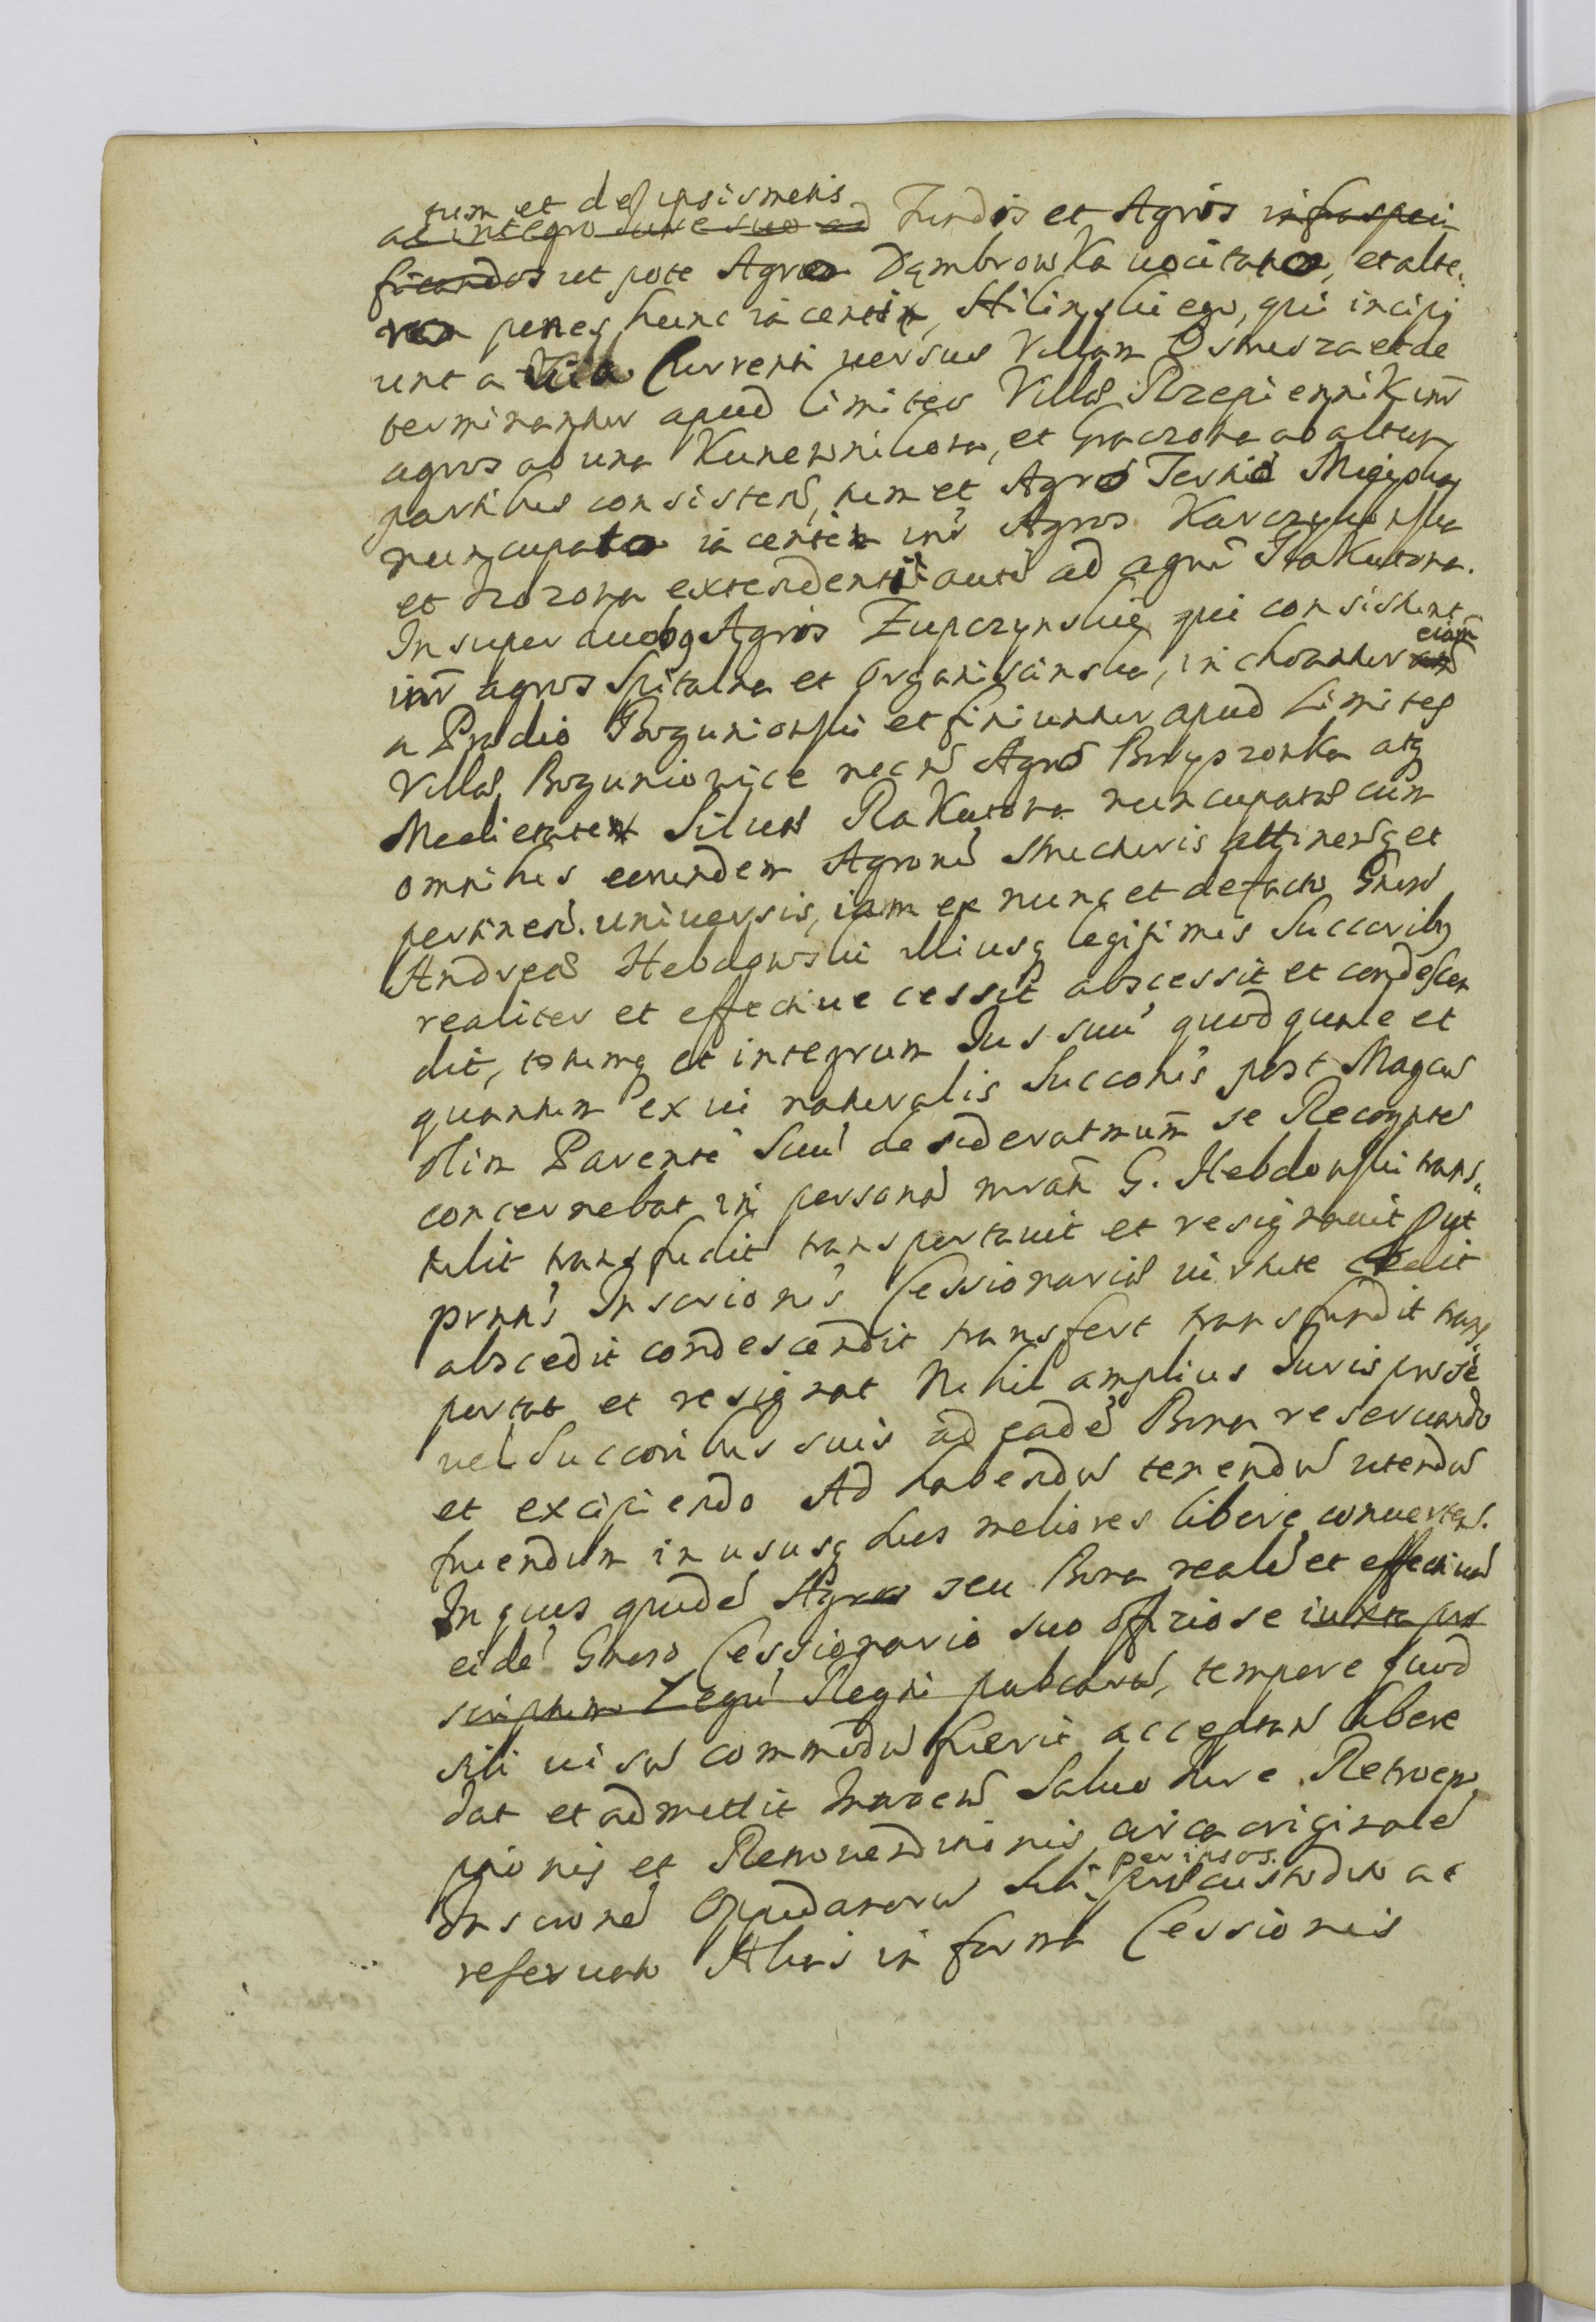 tum et de ipsismetis
ac integro Iure suo ad Fundis et Agris infraspeci-
ficandos ut pote Agro Dąmbrowka vocitato, et alte-
ro penes hunc iacenti, Hilinskiego, qui incipi
unt a Via Currenti versus Villam Ostrusza et de
terminantur apud limites Villae Rzepiennik int
agros ab una Kunewnikowa, et Graczowa ab altera
partibus consisten, tum et Agro Tertio Magiera
nuncupato iacenti int Agros Karczykowska
et Mrozowa extendenti aute ad agru Rakutowa.
Insuper duobq Agris Zupczynskie qui consistunt
int agros Spitalna et Organiscinska, inchoantur etiam
a Prædio Bogunioskii et finiuntur apud Limites
Villæ Boguniowice necn Agro Borypzonka atq
Medietatem Silvæ Rakutowa nuncupatæ cum
omnibus eorundem Agroru structuris attinensq et
pertinen. universis, iam ex nunc et de facto Gnoso
Andreæ Hebdowski illiusq legitimis Succoribq
realiter et effective cessit abscessit et condescen
dit, totumq et integrum Ius suu quod quale et
quantum ex vi naturalis Succonis post Magcos
olim Parente suu desiderat mum se Recognte
concernebat in persona mrati G. Hebdowski trans-
tulit transfudit transportavit et resignavit Put
prntis Inscrionis Cessionariæ virtute cedit
abscedit condescendit transfert transfundit trans
portat et resignat Nihil amplius Iuris pro se
vel Succoribus suis ad eade Bona reservando
et excipiendo Ad habendu tenendu utendu
fruendum in ususq suos meliores libere converten.
In quos quide Agros seu Bona reale et effectiva
eide Gnoso Cessionario suo offiose iuxta præ
scriptum Legu Regni publcaru, tempore quod
sibi visu commodu fuerit acceptan libere
dat et admittit Intromen Salvo Iure Retroemp
ptionis et Retrovenditionis circa originale
Inscrione Oppidanoru sibi per ipsos præcustodito ac
reservato Alias in forma Cessionis